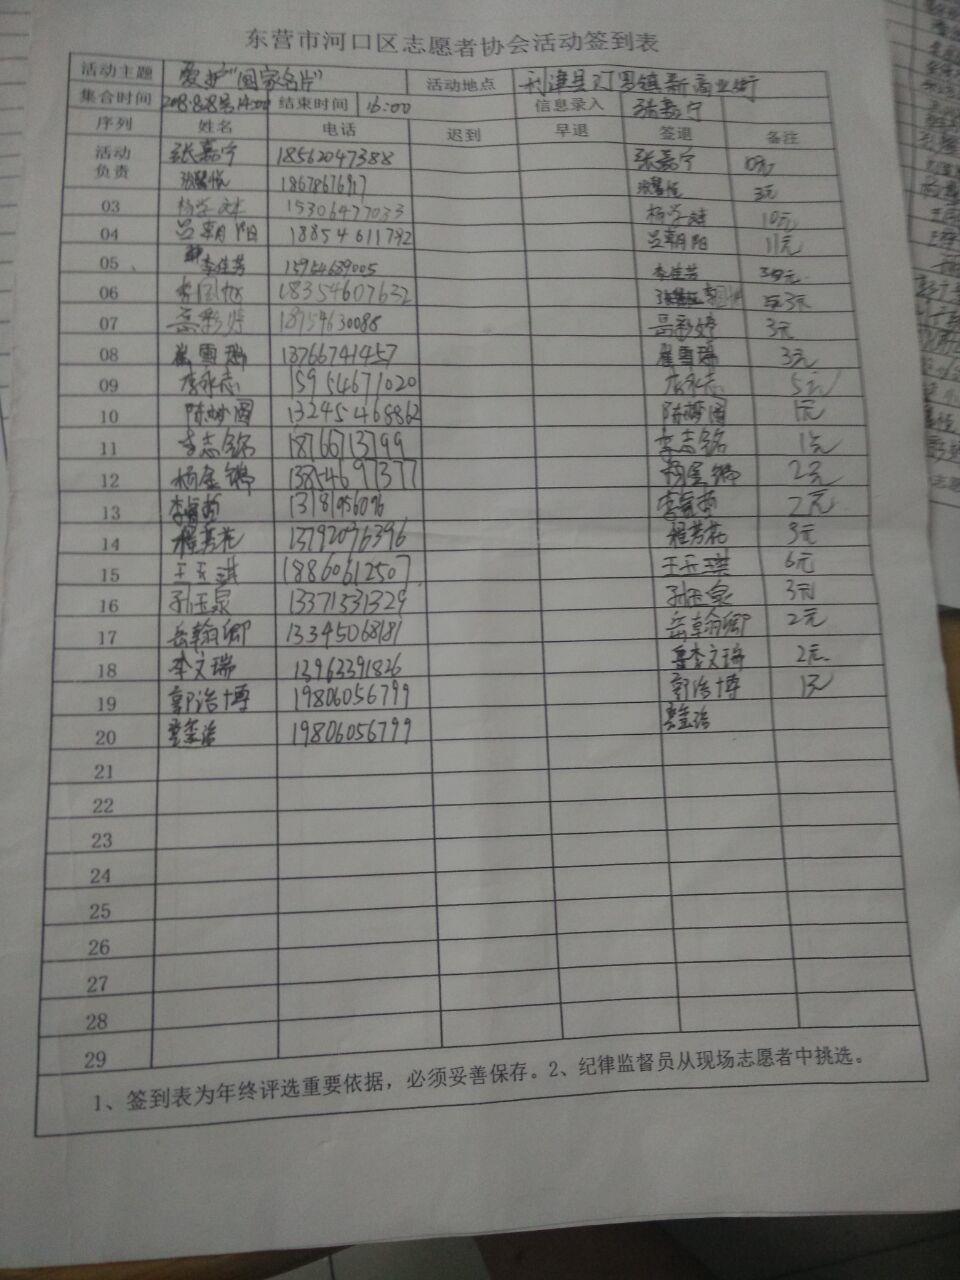 东营市河口区志愿者协会活动签到表
活动主题 爱护"国家名片" 活动地点 利津县汀罗镇新商业街
集合时间 2018.8.8号14:00 结束时间 16:00 信息录入 张嘉宁
序列 姓名 电话 迟到 早退 签退 备注
活动负责 张嘉宁 18562047388 张嘉宁 10元
18678676917 3元
03 15306477033 10元
04 吕朝阳 18854611792 吕朝阳 11元
05 李佳芳 15954689005 李佳芳
06 18354607632 3元
07 岳彩婷 18754630088 岳彩婷 3元
08 崔雪瑞 18766741457 崔雪瑞 3元
09 李永志 15954671020 李永志 5元
10 陈梦圆 13245468862 陈梦圆 1元
11 李志铭 18766713799 李志铭 1元
12 杨金锡 13854697377 杨金锡 2元
13 1318195609 2元
14 程芳花 13792096396 程芳花 3元
15 王玉琪 18860612507 王玉琪 6元
16 孙玉泉 13371531329 孙玉泉 3元
17 岳翰卿 13345068181 岳翰卿 2元
18 李文瑞 13963391826 李文瑞 2元
19 郭浩博 19806056799 郭浩博 1元
20 19806056799
21
22
23
24
25
26
27
28
29
1、签到表为年终评选重要依据，必须妥善保存。2、纪律监督员从现场志愿者中挑选。